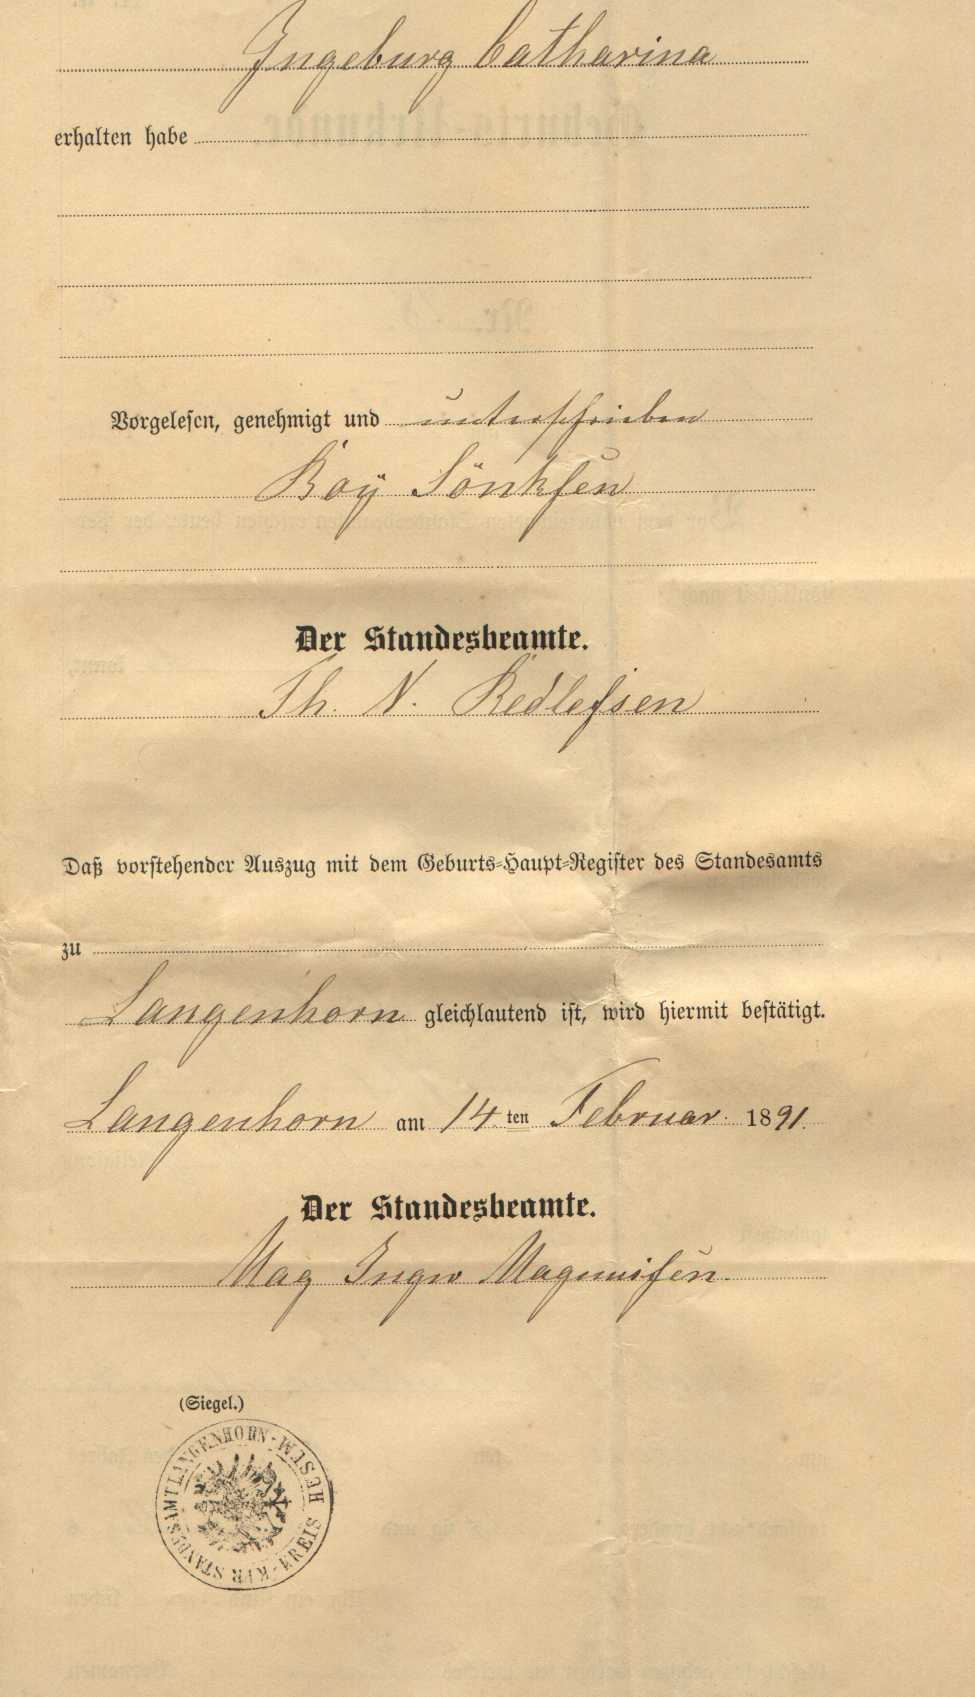 Ingeburg Catharina
erhalten habe
Vorgelesen, genehmigt und unterschrieben
Boÿ Sönksen
Der Standesbeamte.
Th. N. Redlefsen
Daß vorstehender Auszug mit dem Geburts-Haupt-Register des Standesamts
zu
Langenhorn gleichlautend ist, wird hiermit bestätigt.
Langenhorn am 14.ten Februar 1891.
Der Standesbeamte.
Mag Ingw Magnussen.
(Siegel.)
KPR STANDESAMT LANGENHORN · KREIS HUSUM